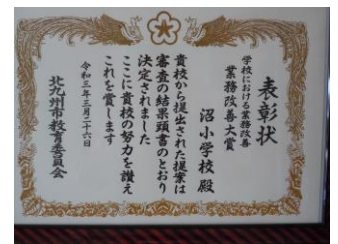 表彰状
学校における業務改善
業務改善大賞
沼小学校殿
貴校から提出された提案は
審査の結果頭書のとおり
決定されました
ここに貴校の努力を讃え
これを賞します
令和三年三月二十六日
北九州市教育委員会